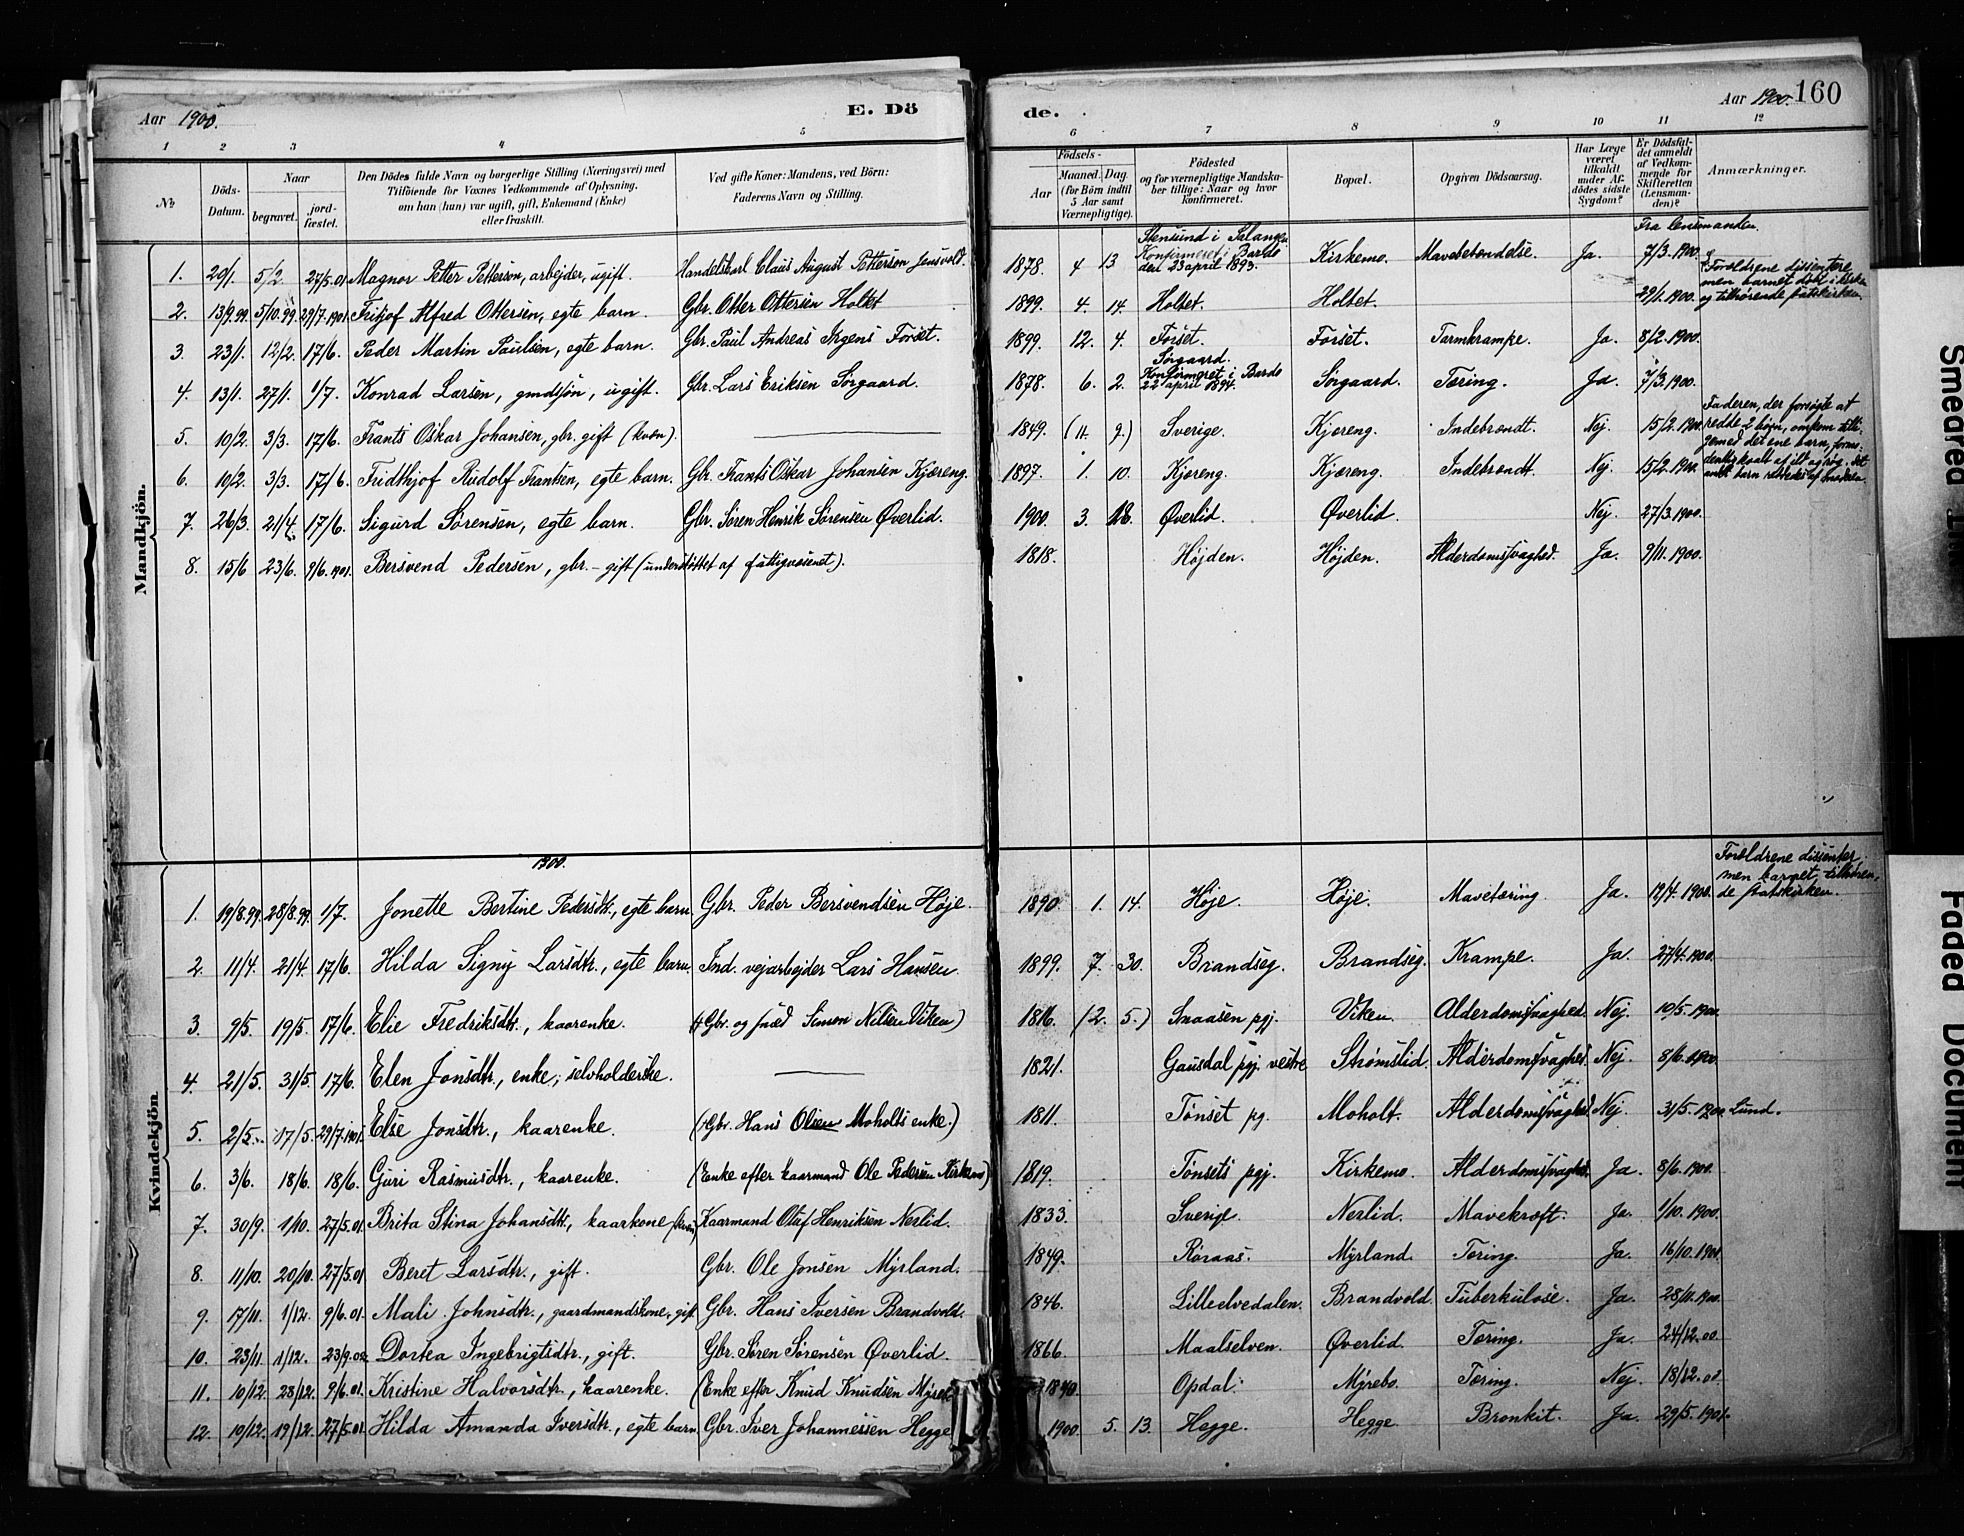 Aar 1900. E. Dö
de. Aar 1900. 160
1 2 3 4 5
6 7 8 9 10 11 12
№ Döds-Datum. Naar begravet. jord-fæstet. Den Dödes fulde Navn og borgerlige Stilling (Næringsvei) med Tilföiende för Voxnes Vedkommende af Oplysning, om han (hun) var ugift, gift, Enkemand (Enke) eller fraskilt. Ved gifte Koner: Mandens, ved Börn: Faderens Navn og Stilling.
Födsels- Aar Maaned. Dag. (for Börn indtil 5 Aar samt Værnepligtige). Födested og for værnepligtige Mandskaber tillige: Naar og hvor konfirmeret. Bopæl. Opgiven Dödsaarsag. Har Læge været tilkaldt under Afdödes sidste Sygdom? Er Dödsfaldet anmeldt af Vedkommende for Skifteretten (Lensmanden)? Anmærkninger.
Mandkjön.
1. 29/1. 5/2. 27/5.01 Magnor Petter Petterson, arbejder, ugift. Handelskarl Claus August Petterson
2. 13/9.99. 5/10.99. 29/7.1901. Fritjof Alfred Ottersen, egte barn. Gbr. Otter Ottersen Holtet
3. 23/1. 12/2. 17/6. Peder Martin Paulsen, egte barn. Gbr. Paul Andreas Irgens Forset.
4. 13/1. 27/1. 1/7. Konrad Larsen, gmdssön, ugift. Gbr. Lars Eriksen Sörgaard.
5. 10/2. 3/3. 17/6. Frants Oskar Johansen, gbr. gift (kvæn).
6. 10/2. 3/3. 17/6. Fridthjof Rudolf Frantsen, egte barn. Gbr. Frants Oskar Johansen Kjæreng.
7. 26/3. 21/4. 17/6. Sigurd Sörensen, egte barn. Gbr. Sören Henrik Sörensen Øverlid.
8. 15/6 23/6. 9/6.1901. Bersvend Pedersen, gbr.- gift (understöttet af fattigvæsenet).
Fra lensmanden.
1878. 4 13 Stensund i Salangen Konfirmeret i Bardo den 23 april 1893. Kirkemo. Mavebetændelse. Ja. 7/3.1900.
1899. 4. 14. Holtet. Holtet. 29/1.1900. Forældrene dissentere men barnet döbt i kirken og tilhörende statskirken.
1899. 12. 4. Forset. Forset. Tarmkrampe. Ja. 8/2.1900.
1878. 6. 2. Sörgaard. Konfirmeret i Bardo 22 april 1894. Sörgaard. Tæring. Ja. 7/3.1900.
1849. (11. 9.) Sverige. Kjæreng. Indebrændt. Nej. 15/2.1900. Faderen, der forsögte at redde 2 börn, omkom tilligemed det ene barn,
1897. 1. 10. Kjæreng. Kjæreng. Indebrændt. Nej. 15/2.1900.
1900. 3. 18. Øverlid. Øverlid. Nej. 27/3.1900.
1818. Höjden. Höjden. Alderdomssvaghed. Ja. 9/11.1900.
Kvindekjön.
1900.
1. 19/8.99. 28/8.99. 1/7. Jonette Bertine Pedersdtr., egte barn Gbr. Peder Bersvendsen Höje.
2. 11/4. 21/4. 17/6. Hilda Signy Larsdtr., egte barn. Ind. vejarbejder Lars Hansen
3. 9/5. 19/5. 17/6. Elie Fredriksdtr., kaarenke. (Gbr. og smed Simon Nilsen Viken)
4. 21/5. 31/5. 17/6. Elen Jonsdtr., enke; selvholderske.
5. 2/5. 17/5. 29/7.1901. Else Jonsdtr., kaarenke. (Gbr. Hans Olsen Moholts enke.)
6. 3/6. 18/6. 18/6. Guri Rasmusdtr., kaarenke. (Enke efter kaarmand Ole Pedersen Kirkemo)
7. 30/9. 1/10. 27/5.01. Brita Stina Johansdtr., kaarkone (kvæn) Kaarmand Olaf Henriksen Nerlid.
8. 11/10. 20/10. 27/5.01 Beret Larsdtr., gift. Gbr. Ole Jonsen Myrland.
9. 17/11. 1/12. 9/6.01. Mali Johnsdtr., gaardmandskone, gift Gbr. Hans Iversen Brandvold.
10. 23/11. 1/12. 23/9.02. Dortea Ingebrigtsdtr., gift. Gbr. Sören Sörensen Øverlid.
11. 10/12. 23/12. 9/6.01. Kristine Halvorsdtr., kaarenke. (Enke efter Knud Knudsen
12. 10/12. 19/12. 27/5.01. Hilda Amanda Iversdtr., egte barn. Gbr. Iver Johannessen Hegge
1890. 1. 14. Höje. Höje. Mavetæring. Ja. 12/4.1900. Forældrene dissenter, men barnet tilhörende statskirken.
1899. 7. 30. Brandseg. Brandseg. Krampe. Ja. 27/4.1900.
1816. (2. 5.) Snaasen pgj. Viken Alderdomssvaghed. Nej. 10/5.1900.
1821. Gausdal pgj. vestre Strömslid. Alderdomssvaghed. Nej. 8/6.1900.
1811. Tönset pg. Moholt. Alderdomssvaghed. Nej. 31/5.1900. Lund.
1819. Tönsets pgj. Kirkemo. Alderdomssvaghed. Ja. 8/6.1900.
1833. Sverige. Nerlid. Mavekræft. Ja. 1/10.1900.
1849. Röraas. Myrland. Tæring. Ja. 16/10.1900
1846. Lilleelvedalen. Brandvold. Tuberkulose. Ja. 28/11.1900.
1866. Maalselven. Øverlid. Tæring. Ja. 24/12.00.
1840. Opdal. Myrebo. Tæring. Nej. 18/12.00.
1900. 5. 13. Hegge. Hegge Bronkit. Ja. 29/5.1901.
Smeared
Faded Document